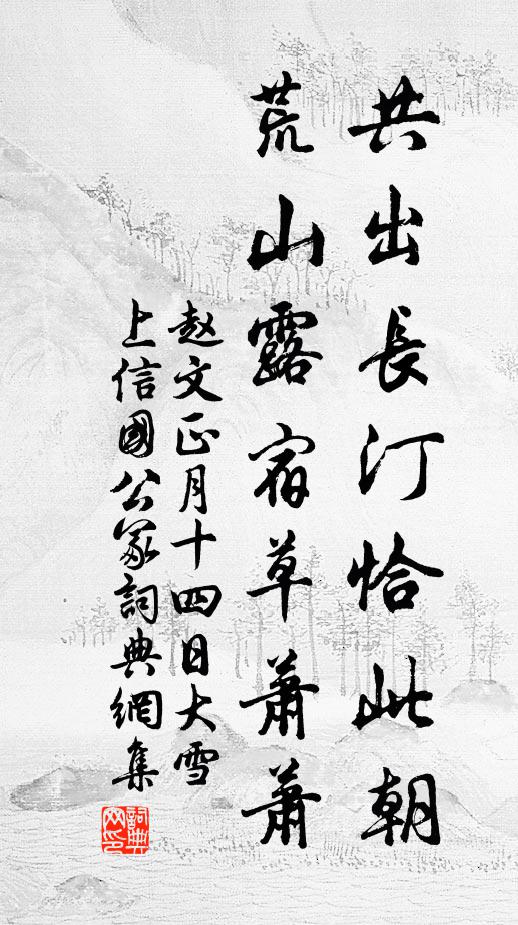 共出長汀恰此朝
荒山露宿草蕭蕭
赵文正月十四日大雪
上信國公冢詞典網集
詞典网印